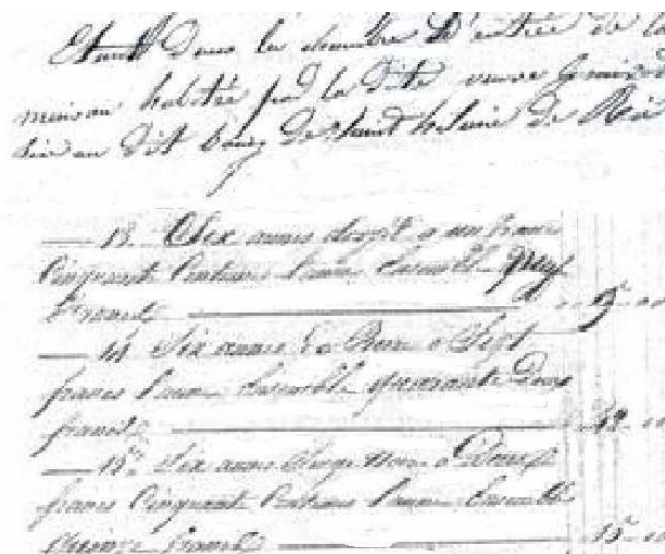 Etant Dans la chambre D'entrée de la
maison habitée par la Dite veuve
au Dit bourg De Saint de
13 Six aunes a un franc
Cinquante Centimes l'aune Ensemble Neuf
francs 9
14 Six aunes De a Sept
francs l'aune Ensemble quarante Deux
francs 42
15 Six aunes Serge Noire a Deux
francs Cinquante Centimes l'aune Ensemble
Quinze francs 15